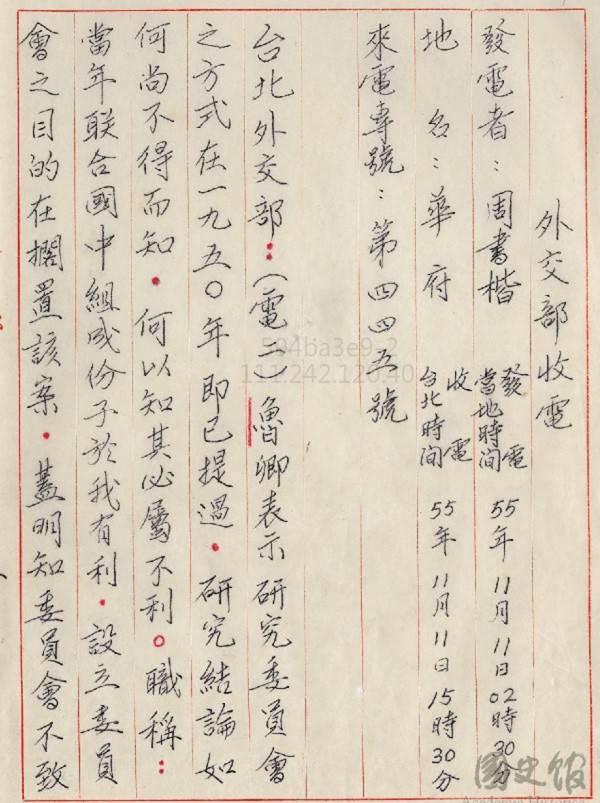 外交部收電
發電者：周書楷
發電
當地時間
55年11月11日02時30分
地名：華府
收電
台北時間
55年11月11日15時30分
來電專號：第四四五號
台北外交部：（電二）魯卿表示研究委員會
之方式在一九五〇年即已提過．研究結論如
何尚不得而知．何以知其必屬不利。職稱：
當年聯合國中組成份子於我有利．設立委員
會之目的在擱置該案．蓋明知委員會不致
594ba3e9-2
111.242.120.40
國史館
Academia Historica